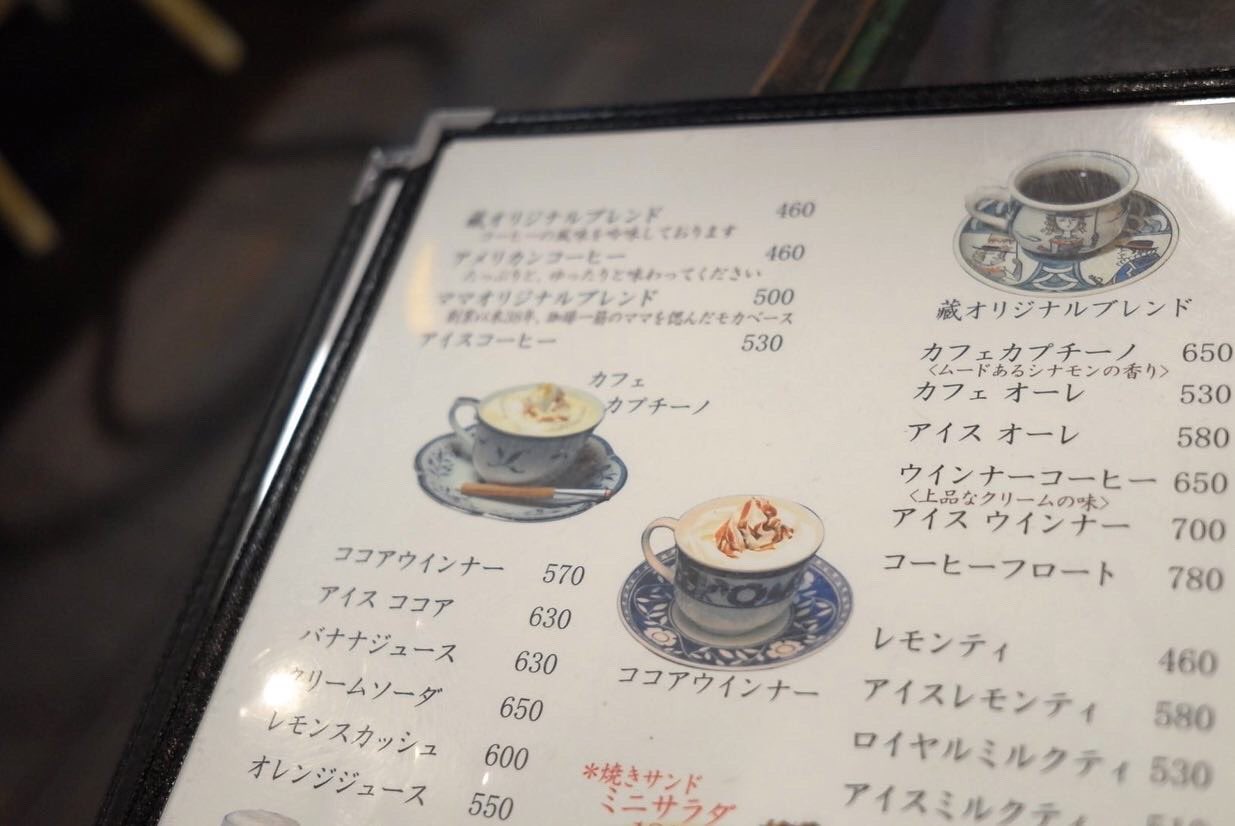 蔵オリジナルブレンド 460
コーヒーの風味を吟味しております
アメリカンコーヒー 460
たっぷりと、ゆったりと味わってください
ママオリジナルブレンド 500
創業以来38年、珈琲一筋のママを偲んだモカベース
アイスコーヒー 530
カフェ
カプチーノ
ココアウインナー 570
アイス ココア 630
バナナジュース 630
クリームソーダ 650
レモンスカッシュ 600
オレンジジュース 550
ココアウインナー
*焼きサンド
ミニサラダ
蔵オリジナルブレンド
カフェカプチーノ 650
<ムードあるシナモンの香り>
カフェ オーレ 530
アイス オーレ 580
ウインナーコーヒー 650
<上品なクリームの味>
アイス ウインナー 700
コーヒーフロート 780
レモンティ 460
アイスレモンティ 580
ロイヤルミルクティ 530
アイスミルクティ